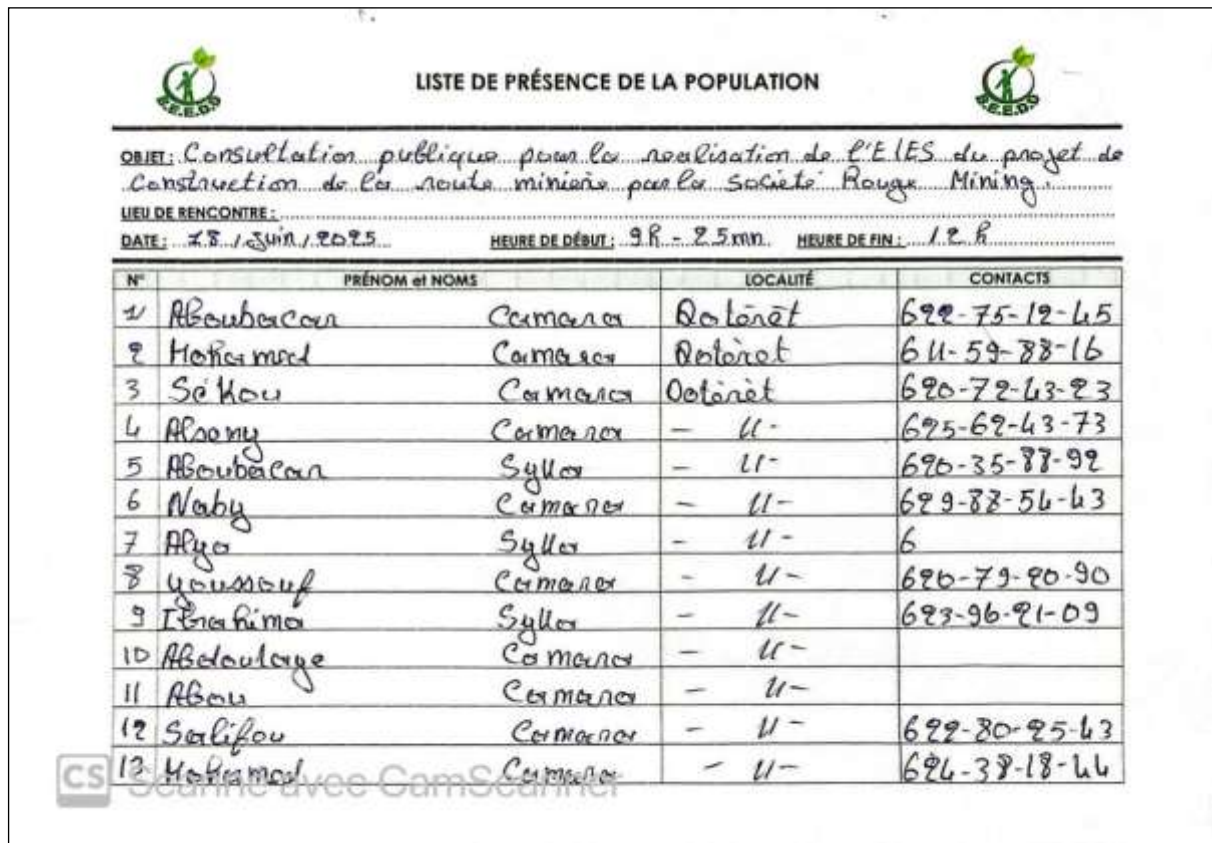 LISTE DE PRÉSENCE DE LA POPULATION
OBJET: Consultation publique pour la realisation de l'EIES du projet de
Construction de la route minière par la Societé Rouge Mining.
LIEU DE RENCONTRE :
DATE: 18 / Juin / 2025 HEURE DE DÉBUT: 9h - 25mn HEURE DE FIN: 12h
N° PRÉNOM et NOMS LOCALITÉ CONTACTS
1 Aboubacar Camara 622-75-12-45
2 Mohamed Camara 611-59-88-16
3 Sékou Camara 620-72-43-23
4 Alseny Camara - 11 - 625-62-43-73
5 Aboubacar Sylla - 11 - 620-35-88-92
6 Naby Camara - 11 - 629-88-54-43
7 Alya Sylla - 11 - 6
8 Youssouf Camara - 11 - 620-79-20-90
9 Ibrahima Sylla - 11 - 623-96-21-09
10 Abdoulaye Camara - 11 -
11 Abou Camara - 11 -
12 Salifou Camara - 11 - 622-80-25-43
13 Mohamed Camara - 11 - 624-38-18-44
CS Scanné avec CamScanner